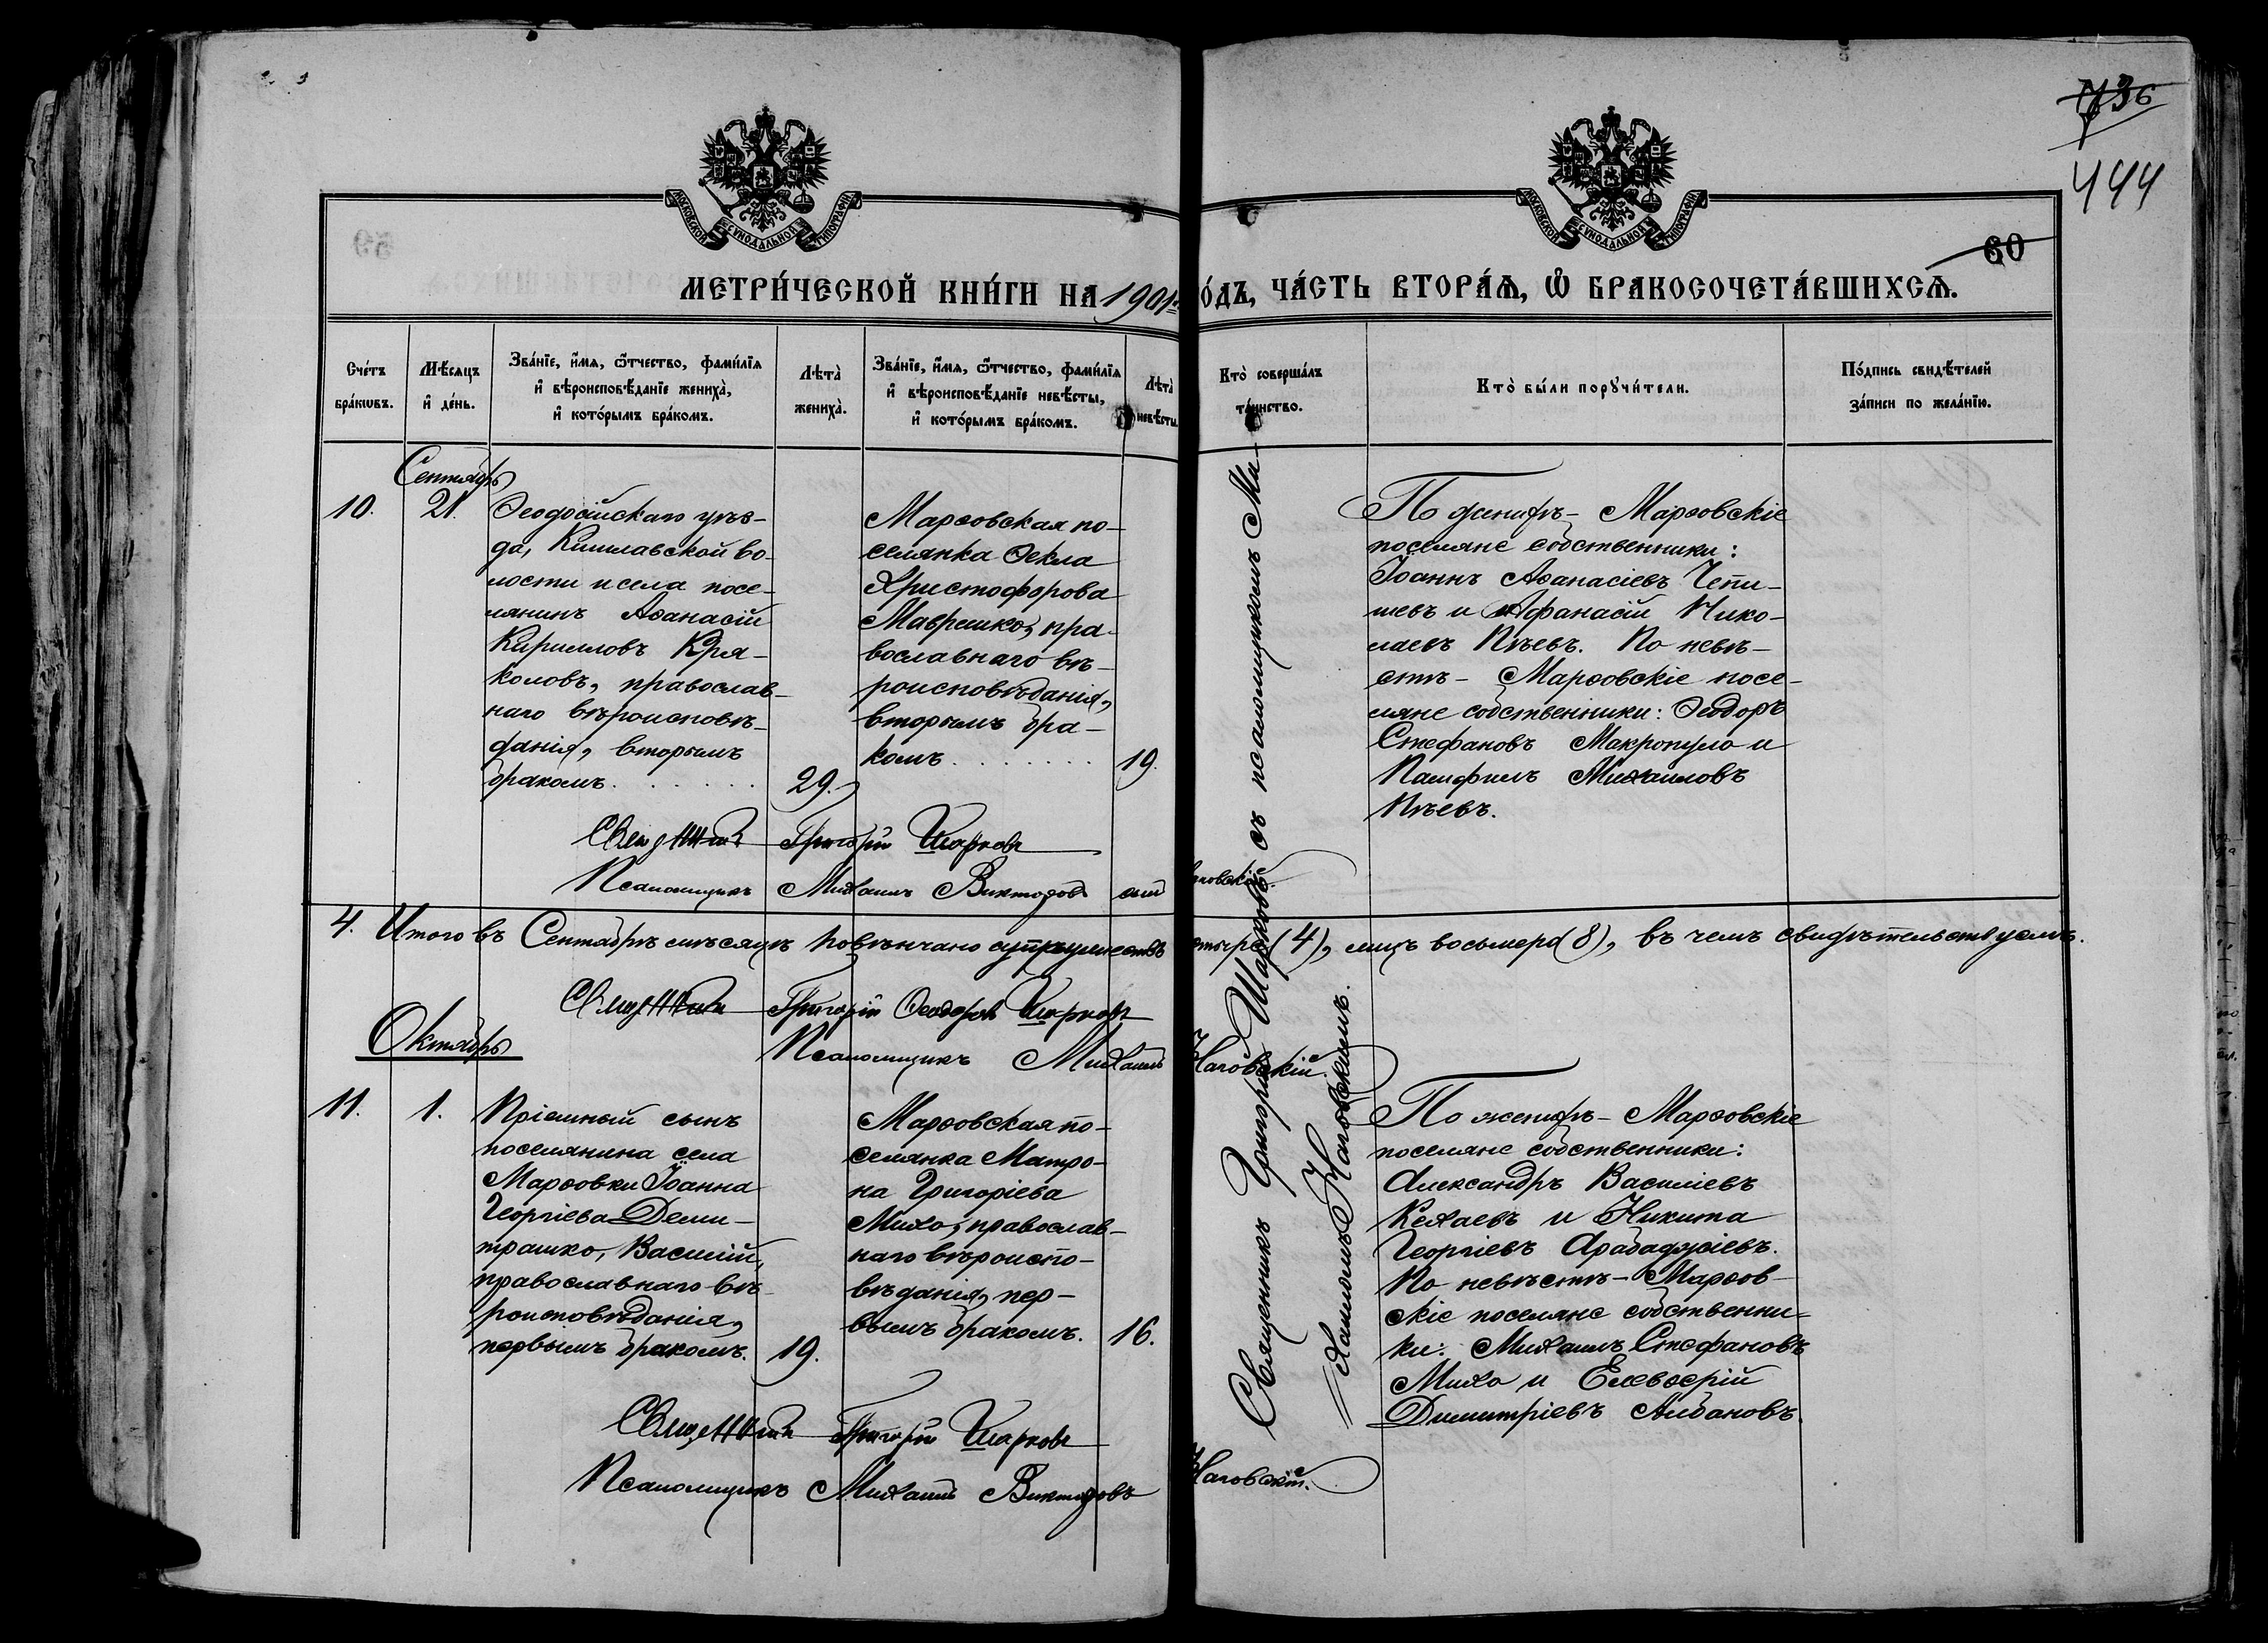 736
444
60
МОСКОВСКОЙ СѴНОДАЛЬНОЙ ТИПОГРАФІИ
МОСКОВСКОЙ СѴНОДАЛЬНОЙ ТИПОГРАФІИ
МЕТРИ́ЧЕСКОЙ КНИ́ГИ НА 1901 О́ДЪ, ЧА́СТЬ ВТОРА́Ѧ, Ѡ҆ БРАКОСОЧЕТА́ВШИХСѦ.
Сче́тъ
бра́кѡвъ.
Мѣ́сяцъ
и҆ де́нь.
Зва́нїе, и҆́мѧ, ѻ҆́тчество, фамилі́ѧ
и҆ вѣроисповѣ́данїе жениха̀,
и҆ кото́рымъ бра́комъ.
Лѣта̀
жениха̀.
Зва́нїе, и҆́мѧ, ѻ҆́тчество, фамилі́ѧ
и҆ вѣроисповѣ́данїе невѣ́сты,
и҆ кото́рымъ бра́комъ.
Лѣта̀
невѣ́сты.
Кто̀ соверша́лъ
та́инство.
Кто̀ бы́ли порꙋчи́тели.
По́дпись свидѣ́телей
за́писи по жела́нїю.
Сентябрь
10.
21.
Ѳеодосійскаго уѣз-
да, Кишлавской во-
лости и села посе-
лянинъ Аѳанасій
Кирилловъ Кря-
коловъ, православ-
наго вѣроисповѣ-
данія, вторымъ
бракомъ.......
29.
Марѳовская по-
селянка Ѳекла
Христофорова
Маврешко, пра-
вославнаго вѣ-
роисповѣданія,
вторымъ бра-
комъ........
19.
Священникъ Григорій Шарковъ съ псаломщикомъ Ми-
хаиломъ Наговскимъ.
По женихѣ - Марѳовскіе
поселяне собственники:
Іоаннъ Аѳанасіевъ Чепи-
шевъ и Афанасій Нико-
лаевъ Пѣевъ. По невѣ-
стѣ - Марѳовскіе посе-
ляне собственники: Ѳеодоръ
Стефановъ Макропуло и
Памфилъ Михаиловъ
Пѣевъ.
Священникъ Григорій Шарковъ
Псаломщикъ Михаилъ Викторовъ
4. Итого въ Сентябрѣ мѣсяцѣ повѣнчано супружествъ етыре (4), лицъ восьмеро (8), въ чемъ свидѣтельствуемъ.
Священникъ Григорій Ѳеодоровъ Шарковъ
Псаломщикъ Михаилъ Наговскій.
Октябрь
11.
1.
Пріемный сынъ
поселянина села
Марѳовки Іоанна
Георгіева Деми-
трашко, Василій,
православнаго вѣ-
роисповѣданія,
первымъ бракомъ.
19.
Марѳовская по-
селянка Матро-
на Григоріева
Михо, православ-
наго вѣроиспо-
вѣданія, пер-
вымъ бракомъ.
16.
По женихѣ - Марѳовскіе
поселяне собственники:
Александръ Василіевъ
Кехаевъ и Никита
Георгіевъ Арабаджіевъ.
По невѣстѣ - Марѳов-
скіе поселяне собственни-
ки: Михаилъ Стефановъ
Михо и Елевѳерій
Димитріевъ Албановъ.
Священникъ Григорій Шарковъ
Псаломщикъ Михаилъ Викторовъ Наговскій.